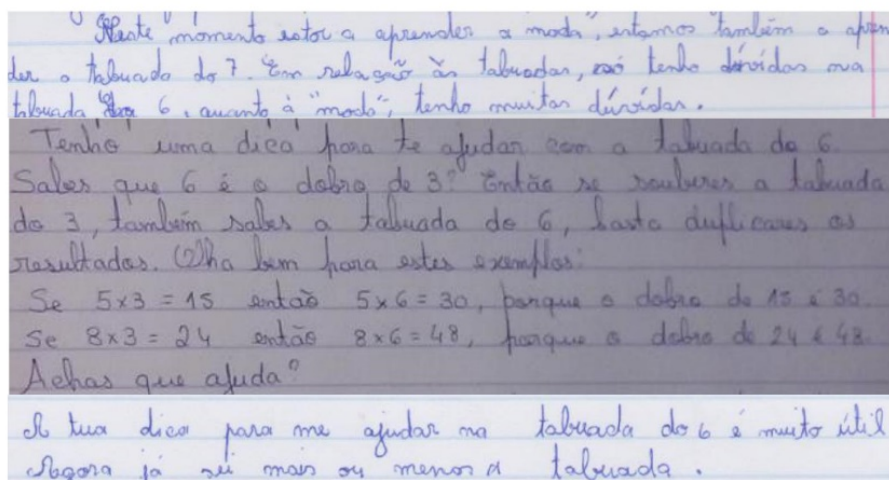 "Neste momento estou a aprender a "moda", estamos também a apren
der a tabuada do 7. Em relação às tabuadas, só tenho dúvidas na
tabuada do 6, quanto à "moda", tenho muitas dúvidas.
Tenho uma dica para te ajudar com a tabuada do 6.
Sabes que 6 é o dobro de 3? Então se souberes a tabuada
do 3, também sabes a tabuada do 6, basta duplicares os
resultados. Olha bem para estes exemplos:
Se 5x3 = 15 então 5x6 = 30, porque o dobro de 15 é 30.
Se 8x3 = 24 então 8x6 = 48, porque o dobro de 24 é 48.
Achas que ajuda?
A tua dica para me ajudar na tabuada do 6 é muito útil
Agora já sei mais ou menos a tabuada.